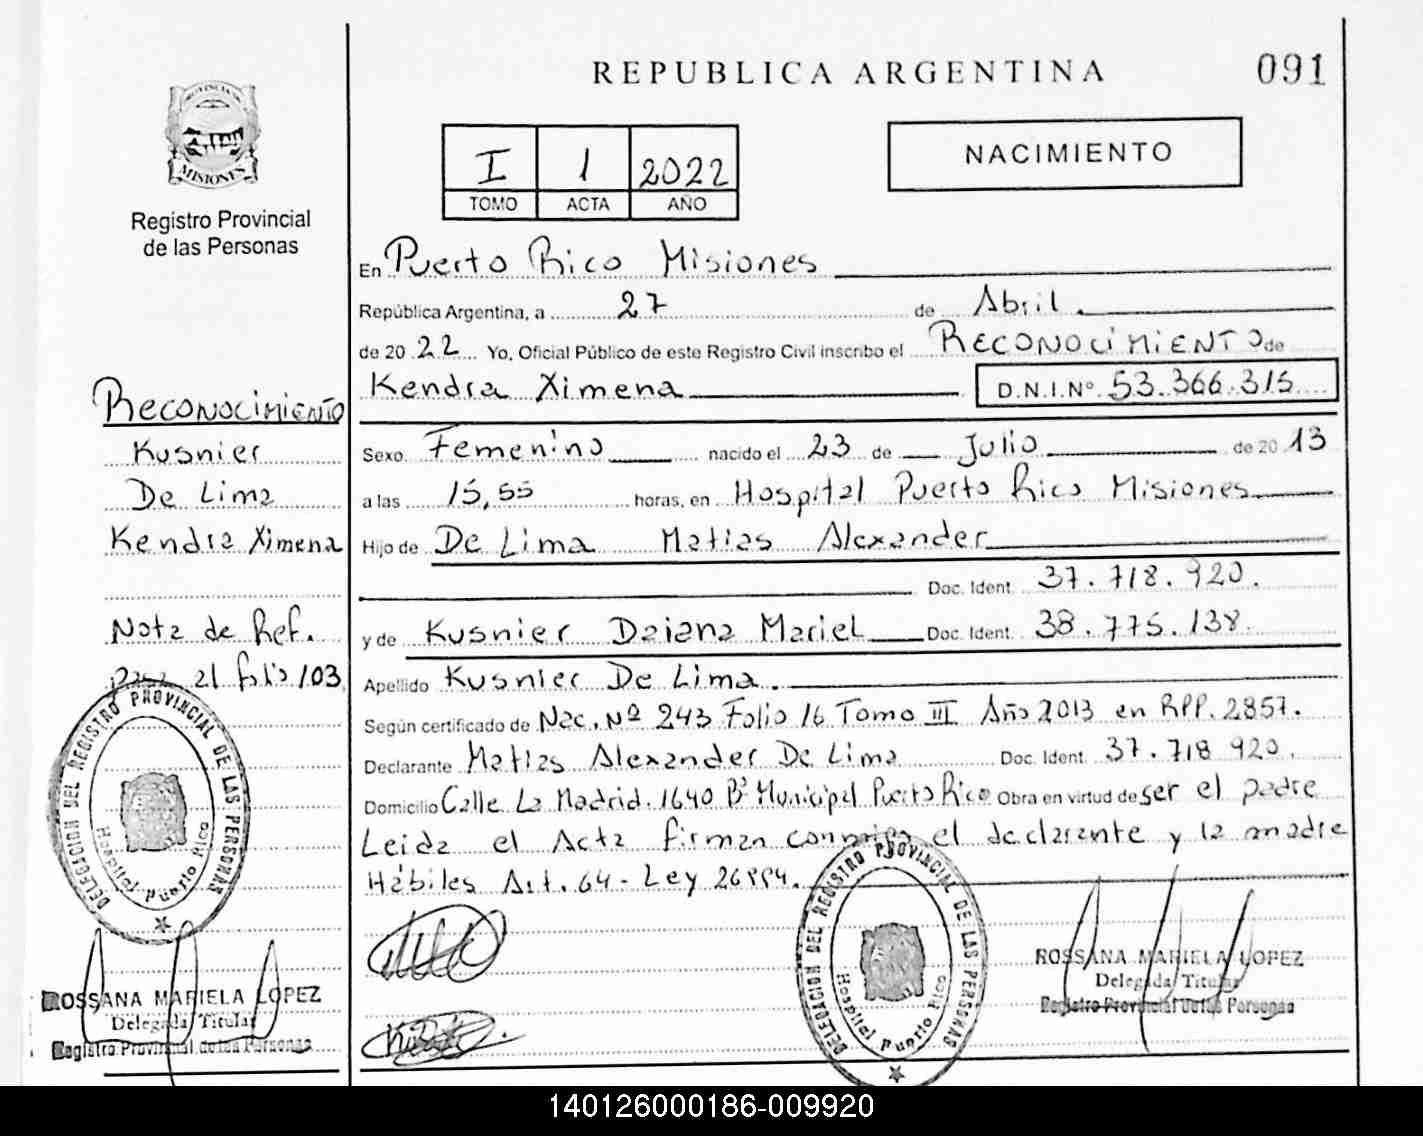 REPUBLICA ARGENTINA
091
PROVINCIA DE
MISIONES
Registro Provincial
de las Personas
I 1 2022
TOMO ACTA AÑO
NACIMIENTO
En Puerto Rico Misiones
República Argentina, a 27 de Abril.
de 20 22 Yo, Oficial Público de este Registro Civil inscribo el RECONOCIMIENTO de
Kendra Ximena D.N.I.Nº 53.366.315
Sexo Femenino nacido el 23 de Julio de 20 13
a las 15,55 horas, en Hospital Puerto Rico Misiones
Hijo de De Lima Matias Alexander
Doc. Ident. 37.718.920.
y de Kusnier Daiana Mariel Doc. Ident. 38.775.138.
Apellido Kusnier De Lima.
Según certificado de Nac. Nº 243 Folio 16 Tomo III Año 2013 en RPP. 2857.
Declarante Matias Alexander De Lima Doc. Ident. 37.718 920.
Domicilio Calle La Madrid 1640 Bº Municipal Puerto Rico Obra en virtud de ser el padre
Leida el Acta firman conmigo el declarante y la madre
Hábiles Art. 64 - Ley 26994.
Reconocimiento
Kusnier
De Lima
Kendra Ximena
Nota de Ref.
Pasa al folio 103
DELEGACION DEL REGISTRO PROVINCIAL DE LAS PERSONAS
Hospital Puerto Rico
ROSSANA MARIELA LOPEZ
Delegada Titular
Registro Provincial de las Personas
DELEGACION DEL REGISTRO PROVINCIAL DE LAS PERSONAS
Hospital Puerto Rico
ROSSANA MARIELA LOPEZ
Delegada Titular
Registro Provincial de las Personas
140126000186-009920